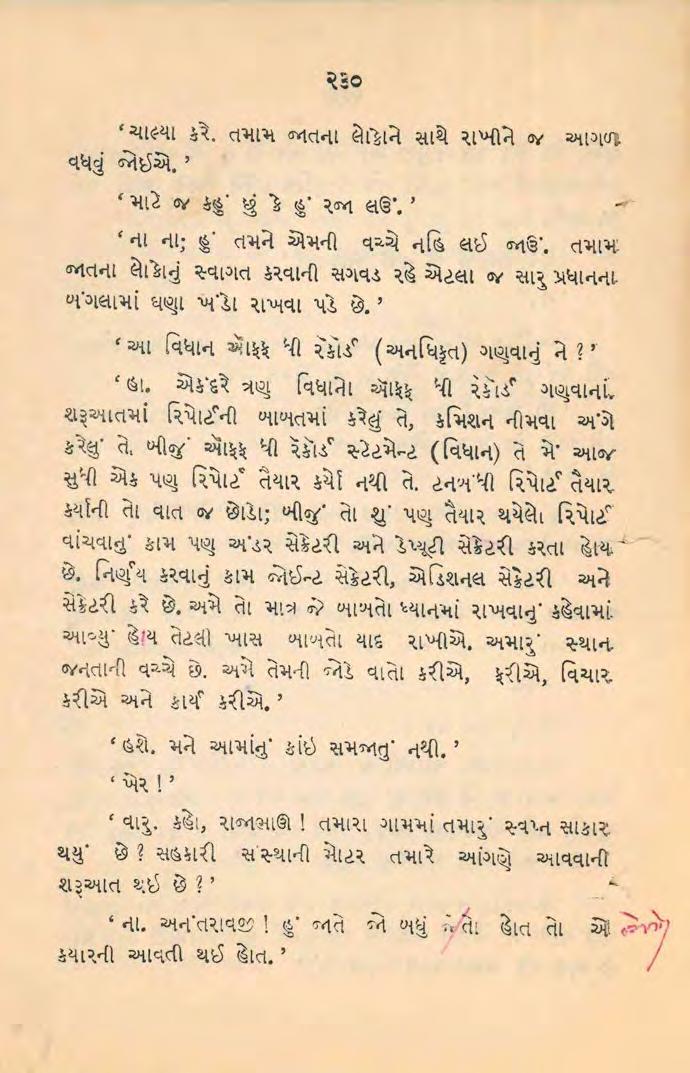 ૨૩૦
‘ચાલ્યા કરે. તમામ જાતના લોકોને સાથે રાખીને જ આગળ
વધવું જોઈએ.’
‘માટે જ કહું છું કે હું રજા લઉં.’
‘ના ના; હું તમને એમની વચ્ચે નહિ લઈ જાઉં. તમામ
જાતના લોકોનું સ્વાગત કરવાની સગવડ રહે એટલા જ સારુ પ્રધાનના
બંગલામાં ઘણા ખંડો રાખવા પડે છે.’
‘આ વિધાન ઑફફ ધી રૅકૉર્ડ (અનધિકૃત) ગણવાનું ને ?’
‘હા. એકંદરે ત્રણ વિધાનો ઑફફ ધી રૅકૉર્ડ ગણવાનાં.
શરૂઆતમાં રિપોર્ટની બાબતમાં કરેલું તે, કમિશન નીમવા અંગે
કરેલું તે. બીજું ઑફફ ધી રૅકૉર્ડ સ્ટેટમેન્ટ (વિધાન) તે મેં આજ
સુધી એક પણ રિપોર્ટ તૈયાર કર્યો નથી તે. ટનબંધી રિપોર્ટ તૈયાર
કર્યાની તો વાત જ છોડો; બીજું તો શું પણ તૈયાર થયેલો રિપોર્ટ
વાંચવાનું કામ પણ અંડર સેક્રેટરી અને ડેપ્યૂટી સેક્રેટરી કરતા હોય
છે. નિર્ણય કરવાનું કામ જોઈન્ટ સેક્રેટરી, એડિશનલ સેક્રેટરી અને
સેક્રેટરી કરે છે. અમે તો માત્ર જે બાબતો ધ્યાનમાં રાખવાનું કહેવામાં
આવ્યું હોય તેટલી ખાસ બાબતો યાદ રાખીએ. અમારું સ્થાન
જનતાની વચ્ચે છે. અમે તેમની જોડે વાતો કરીએ, ફરીએ, વિચાર
કરીએ અને કાર્ય કરીએ.’
‘હશે. મને આમાંનું કાંઇ સમજાતું નથી.’
‘ખેર !’
‘વારુ. કહો, રાજાભાઊ ! તમારા ગામમાં તમારું સ્વપ્ન સાકાર
થયું છે ? સહકારી સંસ્થાની મોટર તમારે આંગણે આવવાની
શરૂઆત થઇ છે ?’
‘ના. અનંતરાવજી ! હું જાતે જો બધું હોત તો એ
કયારની આવતી થઈ હોત.’